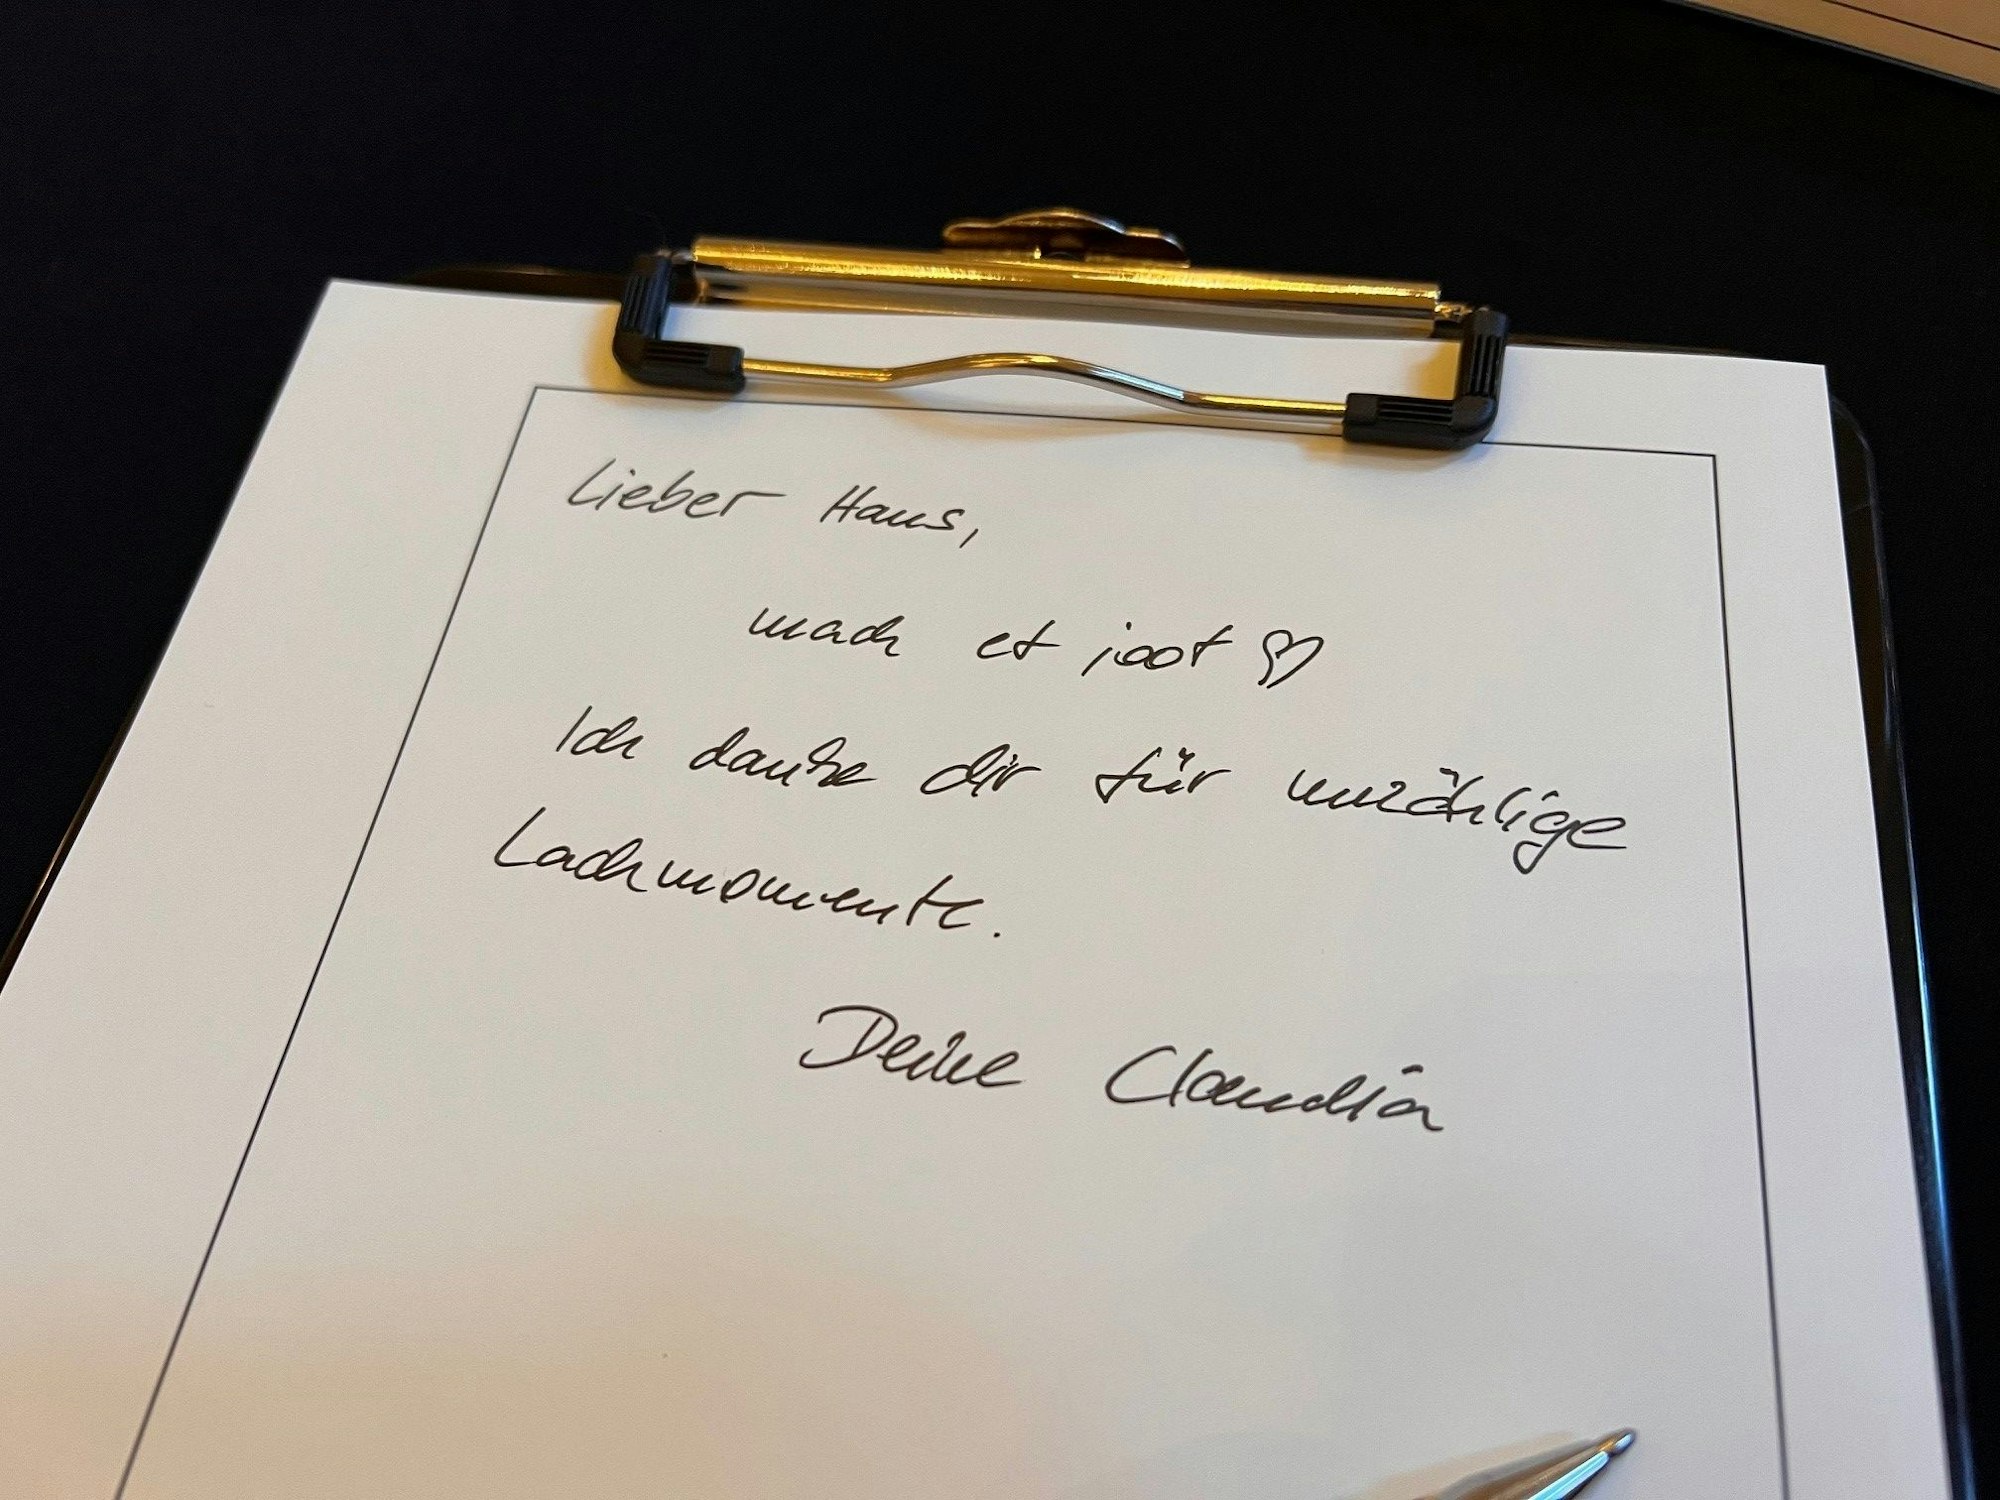 Lieber Hans,
mach et joot ♡
Ich danke dir für unzählige
Lachmomente.
Deine Claudia